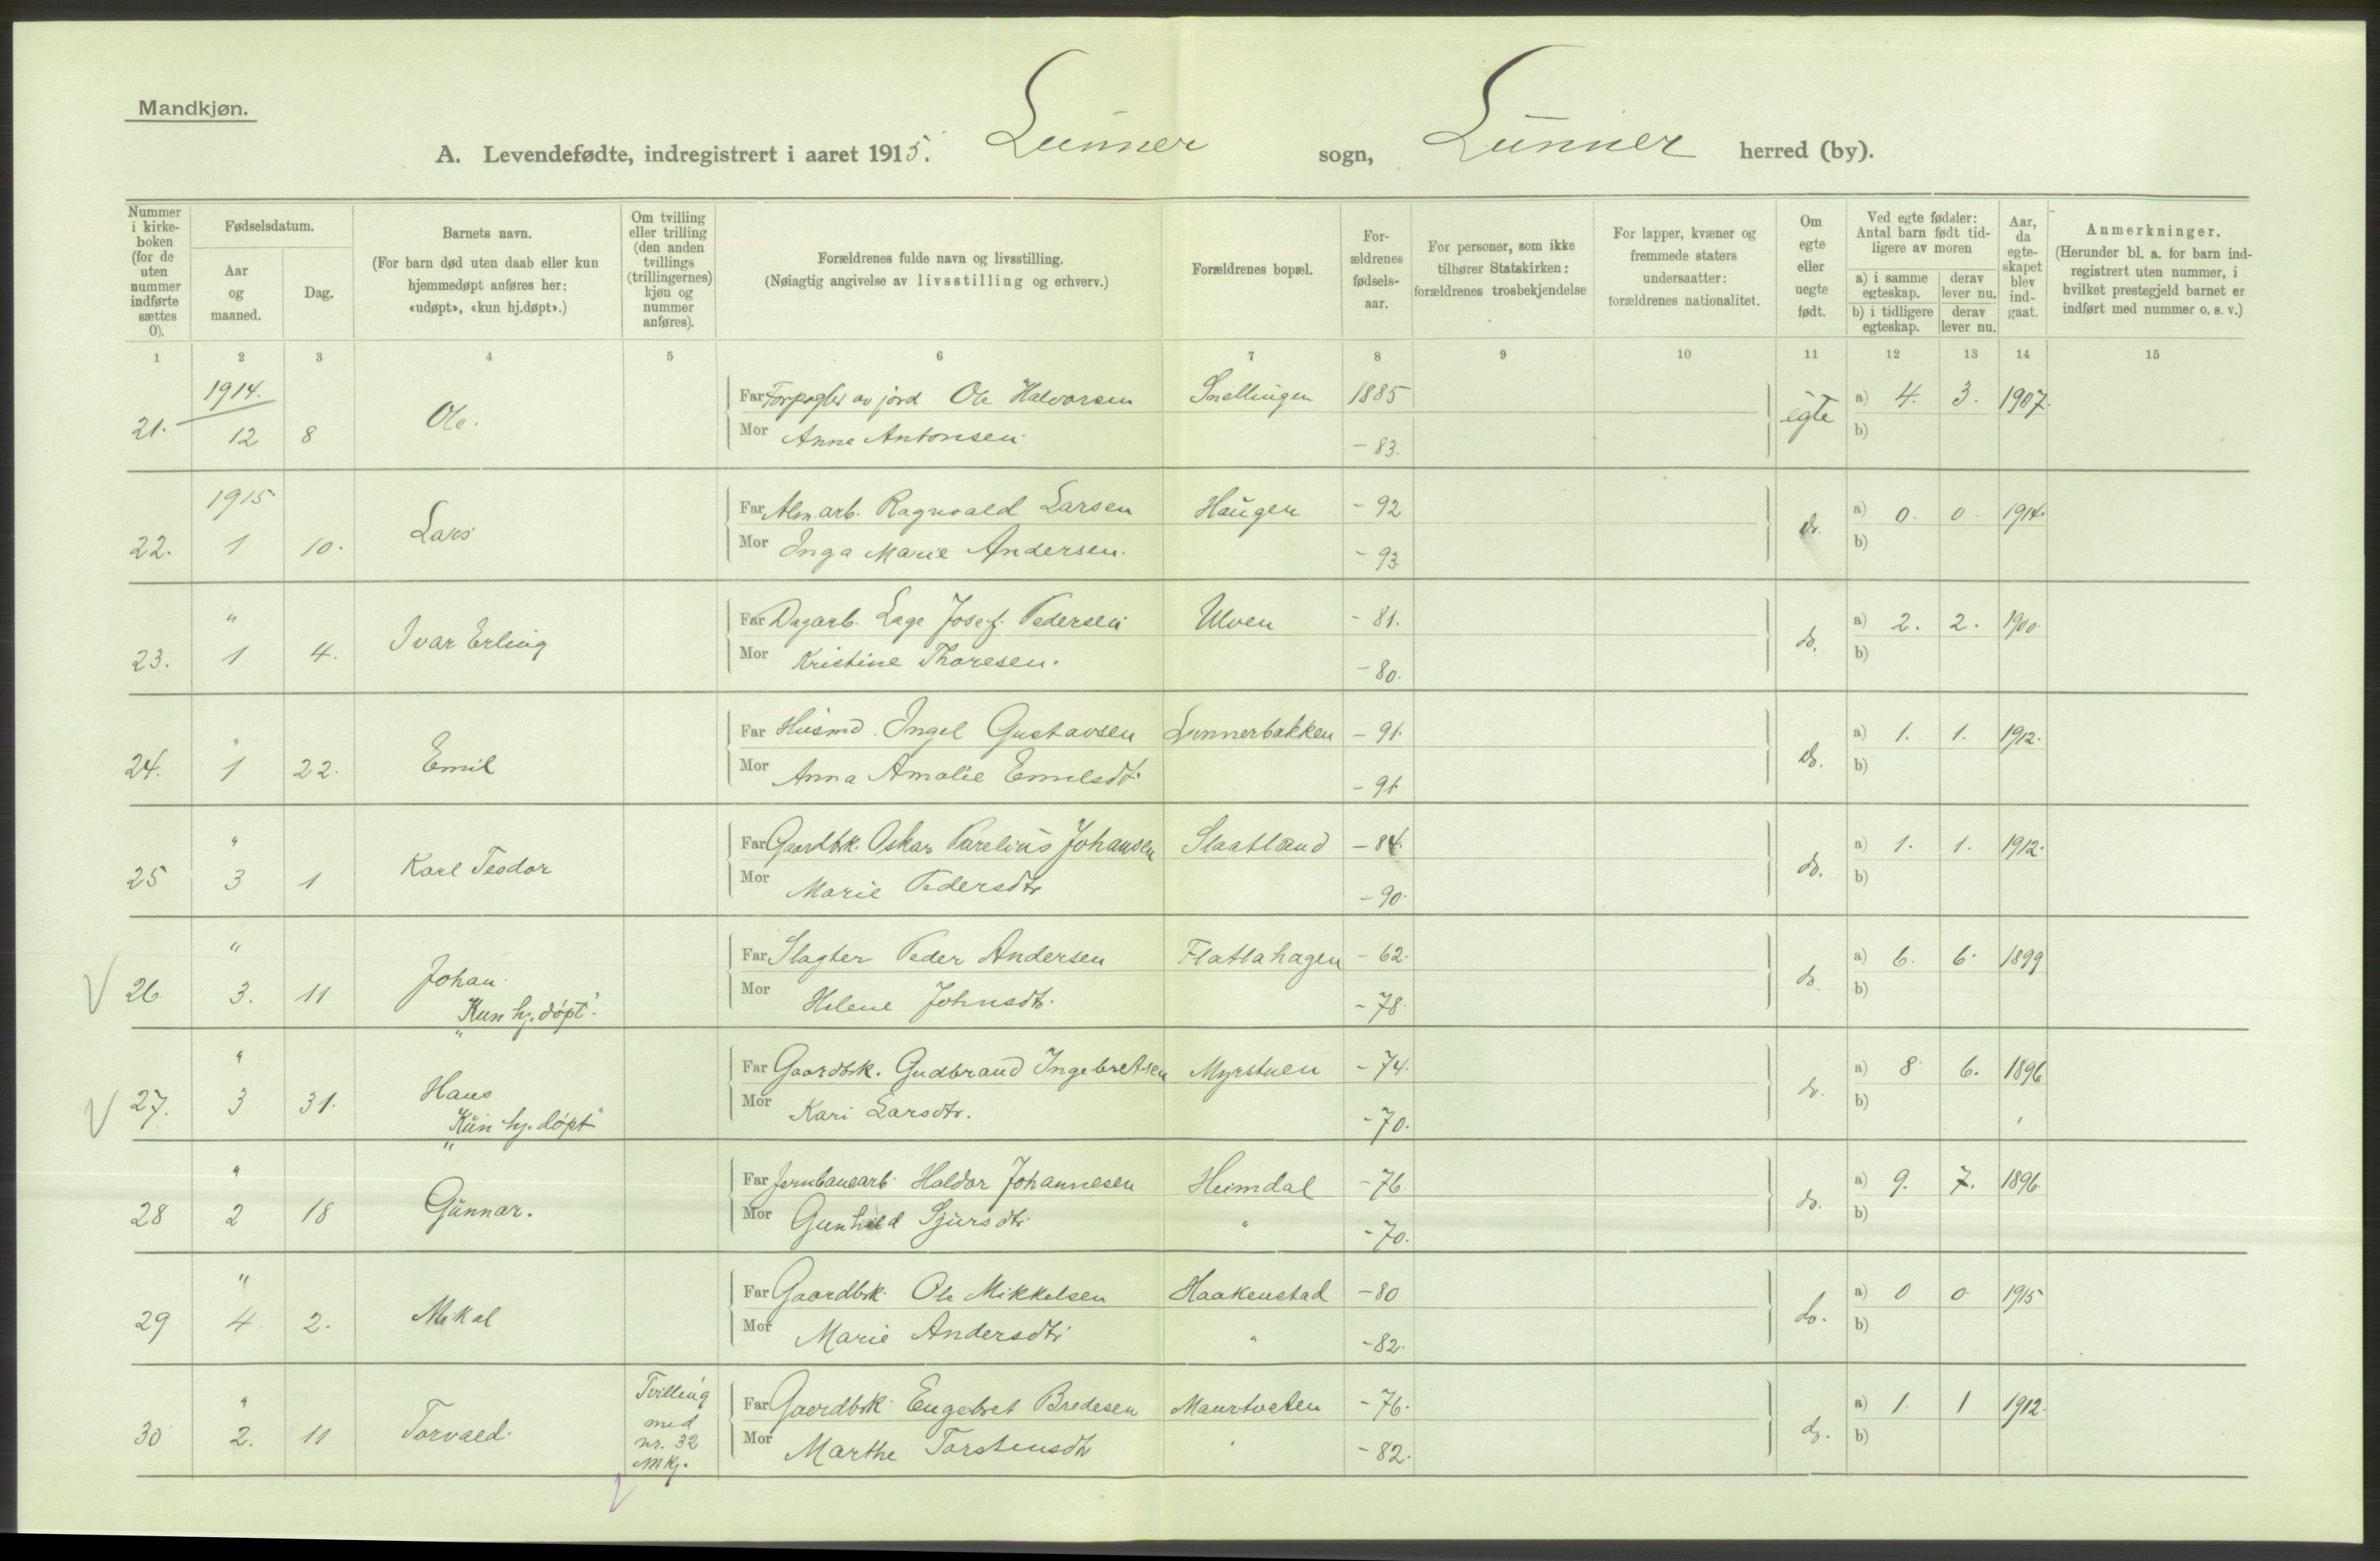 Mandkjøn.
A. Levendefødte, indregistrert i aaret 1915. Lunner sogn, Lunner herred (by).
Nummer i kirke-boken (for de uten nummer indførte sættes 0).
Fødselsdatum.
Aar og maaned.
Dag.
Barnets navn.
(For barn død uten daab eller kun hjemmedøpt anføres her: «udøpt», «kun hj.døpt».)
Om tvilling eller trilling (den anden tvillings (trillingernes) kjøn og nummer anføres).
Forældrenes fulde navn og livsstilling.
(Nøiagtig angivelse av livsstilling og erhverv.)
Forældrenes bopæl.
For-ældrenes fødsels-aar.
For personer, som ikke tilhører Statskirken: forældrenes trosbekjendelse
For lapper, kvæner og fremmede staters undersaatter: forældrenes nationalitet.
Om egte eller uegte født.
Ved egte fødsler: Antal barn født tid-ligere av moren
a) i samme egteskap. derav lever nu.
b) i tidligere egteskap. derav lever nu.
Aar, da egte-skapet blev ind-gaat.
Anmerkninger.
(Herunder bl. a. for barn ind-registrert uten nummer, i hvilket prestegjeld barnet er indført med nummer o. s. v.)
1 2 3 4 5 6 7 8 9 10 11 12 13 14 15
1914.
21. 12 8 Ole.
Far Forpagter av jord Ole Halvorsen Snellingen 1885 egte a) 4. 3. 1907.
Mor Anne Antonsen. - 83. b)
1915
22. 1 10. Lars
Far Alm.arb. Ragnvald Larsen Haugen - 92 do. a) 0. 0. 1914.
Mor Inga Marie Andersen. - 93. b)
"
23. 1 4. Ivar Erling
Far Dagarb. Lage Josef Pedersen Ulven - 81. do. a) 2. 2. 1900.
Mor Kristine Thoresen. - 80. b)
"
24. 1 22. Emil
Far Husmd. Ingel Gustavsen Lunnerbakken - 91. do. a) 1. 1. 1912.
Mor Anna Amalie Emilsdtr. - 91. b)
"
25 3 1 Karl Teodor
Far Gaardbk. Oskar Parelius Johansen Slaatland - 84. do. a) 1. 1. 1912.
Mor Marie Pedersdtr - 90. b)
"
26 3. 11 Johan.
"Kun hj. døpt".
Far Slagter Peder Andersen Flatlahagen - 62. do. a) 6. 6. 1899
Mor Helene Johnsdtr. - 78. b)
"
27. 3 31. Hans
"Kun hj. døpt"
Far Gaardbk. Gudbrand Ingebretsen Myrstuen - 74. do. a) 8 6. 1896
Mor Kari Larsdtr. - 70. b)
"
28 2 18 Gunnar.
Far Jernbanearb. Haldor Johannesen Heimdal - 76. do. a) 9. 7. 1896.
Mor Gunhild Sjursdtr. " - 70. b)
"
29 4. 2. Mikal
Far Gaardbk. Ole Mikkelsen Haakenstad - 80 do. a) 0 0. 1915
Mor Marie Andersdtr " - 82. b)
"
30 2. 11 Torvald. Tvilling med nr. 32 Mkj.
Far Gaardbk. Engebret Bredesen Maurtveten - 76. do. a) 1. 1 1912.
Mor Marthe Torstensdtr " - 82. b)